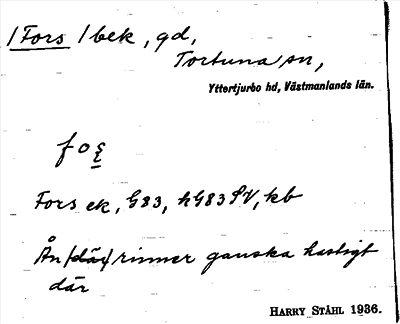 /Fors /bek, gd,
Tortuna sn,
Yttertjurbo hd, Västmanlands län.
Fors ek, G83, hG83 SV, kb
Ån /där/ rinner ganska hastigt
där
HARRY STÅHL 1936.